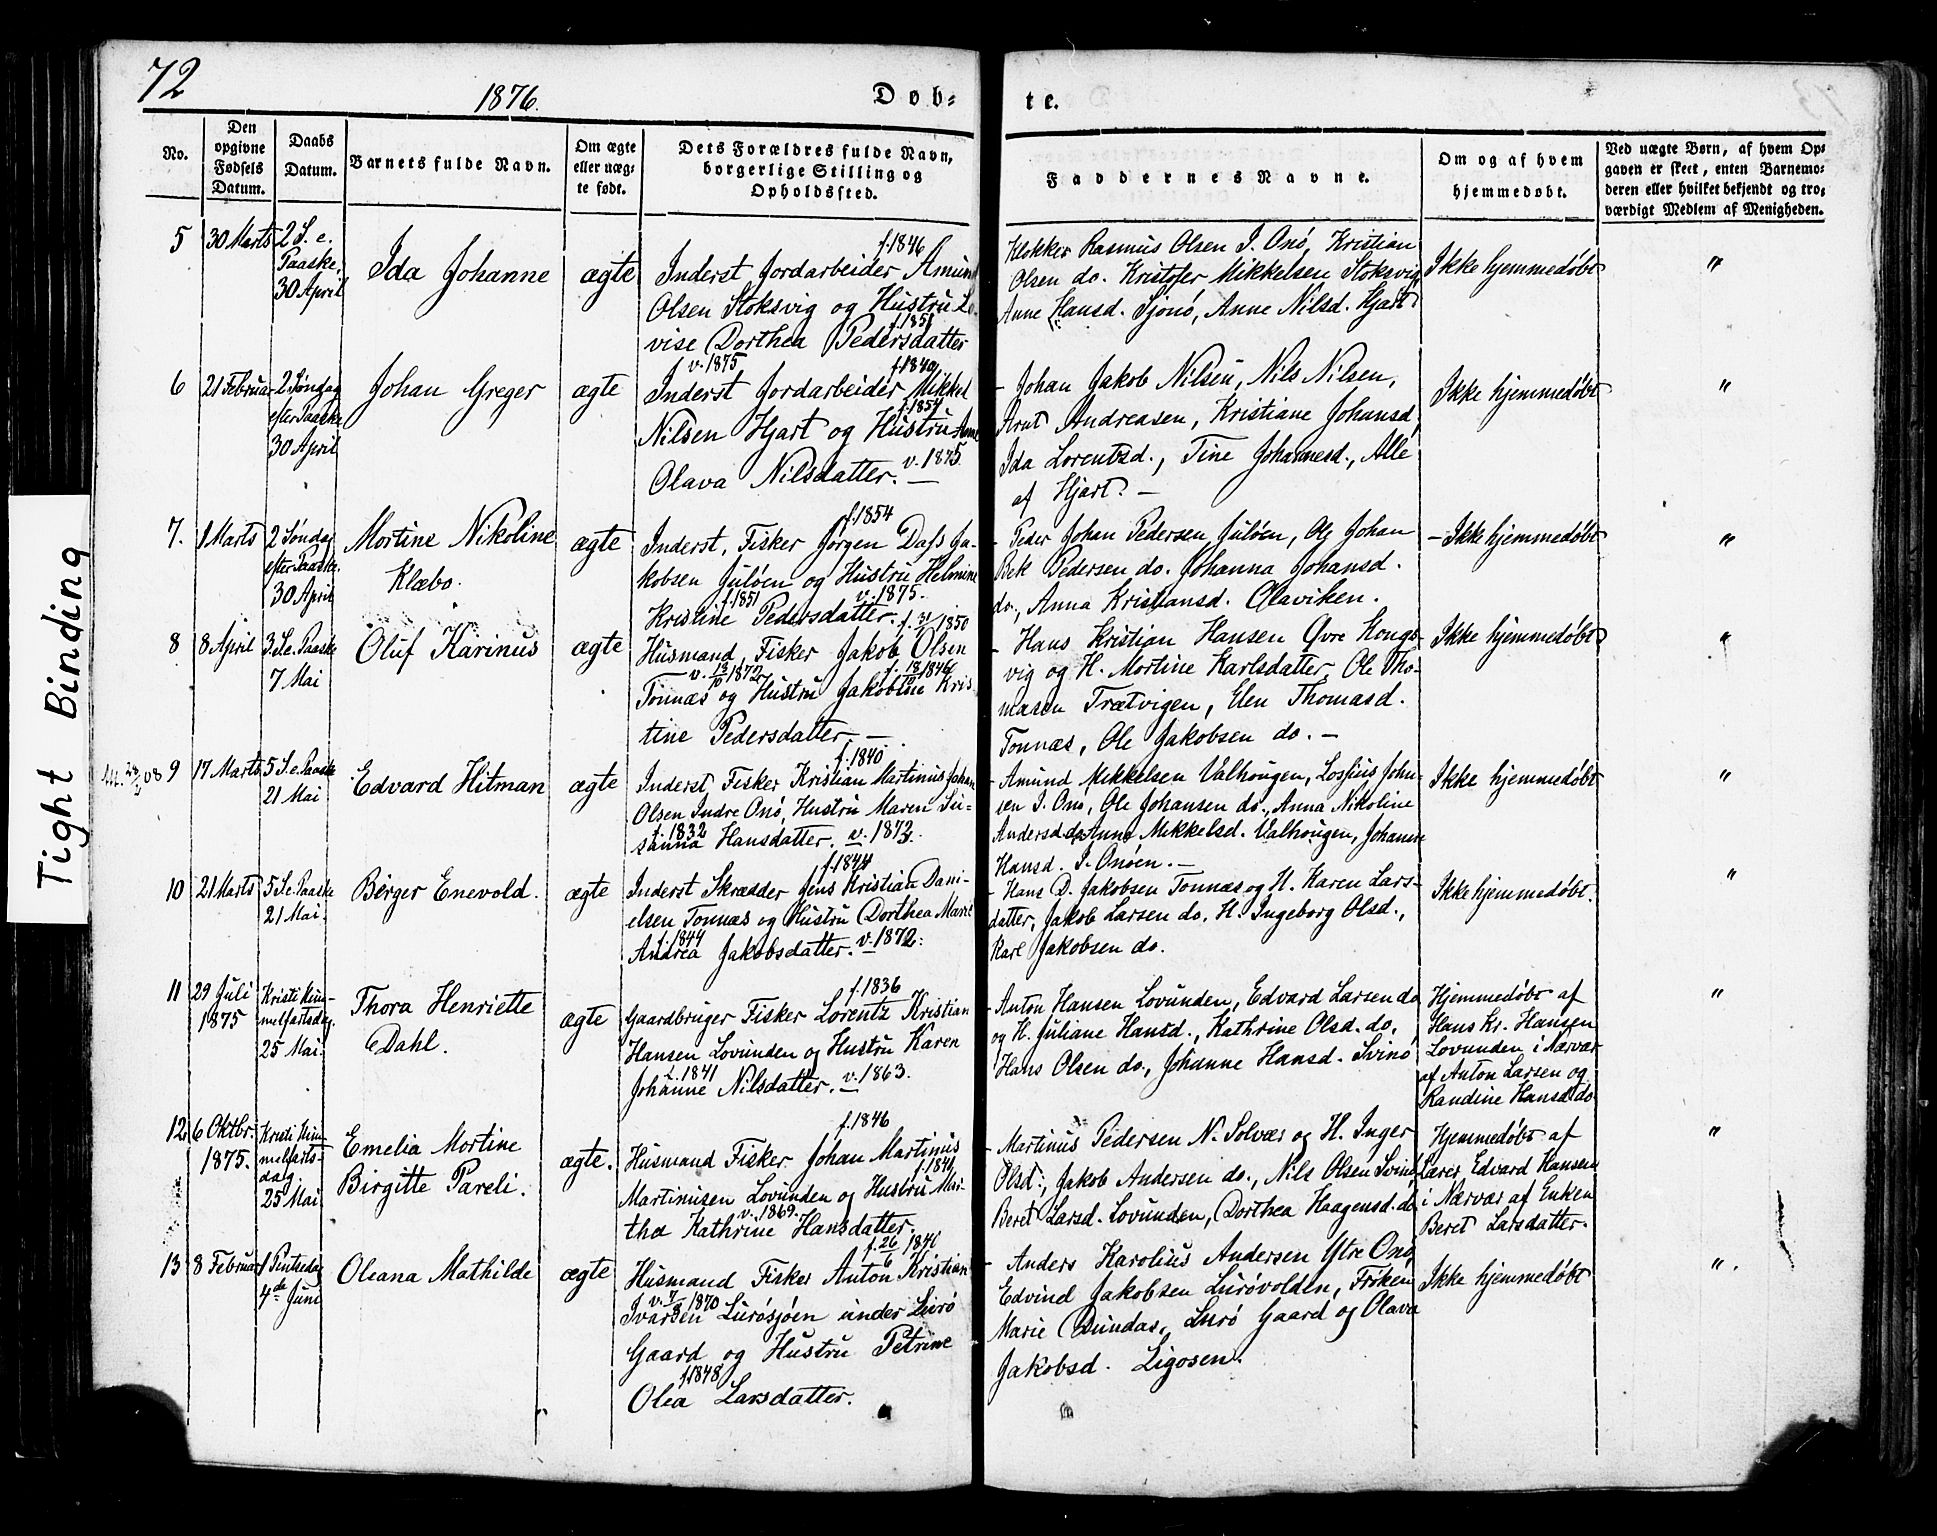 72
1876.
Døb-
te.
No.
Den opgivne Fødsels Datum.
Daabs Datum.
Barnets fulde Navn.
Om ægte eller uægte født.
Dets Forældres fulde Navn, borgerlige Stilling og Opholdssted.
Faddernes Navne.
Om og af hvem hjemmedøbt.
Ved uægte Børn, af hvem Opgaven er skeet, enten Barnemoderen eller hvilket bekjendt og troværdigt Medlem af Menigheden.
Tight Binding
5
30 Marts
2 S. e.
Paaske,
30 April
Ida Johanne
ægte
f. 1846
Inderst Jordarbeider Amund
Olsen Stoksvig og Hustru Lo-
f. 1851
vise Dorthea Pedersdatter
v. 1875
Klokker Rasmus Olsen I. Onø, Kristian
Olsen do. Kristofer Mikkelsen Stoksvig,
Anne Hansd. Sjonø, Anne Nilsd. Hjart
Ikke hjemmedøbt
"
6
21 Februar
2 Søndag
efter Paaske
30 April
Johan Greger
ægte
Inderst Jordarbeider Mikkel
f. 1854
Nilsen Hjart og Hustru Anne
Olava Nilsdatter. v. 1875.
- Johan Jakob Nilsen, Nils Nilsen,
Arnt Andreasen, Kristiane Johansd,
Ida Lorentsd., Tine Johannesd., Alle
af Hjart. -
Ikke hjemmedøbt
"
7.
1 Marts
2 Søndag
efter Paaske.
30 April
Mortine Nikoline
Klæbo.
ægte
f. 1854
Inderst, Fisker Jørgen Dass Ja-
kobsen Juløen og Hustru Helmine
f. 1851 v. 1875.
Kristine Pedersdatter.
- Peder Johan Pedersen Juløen, Ole Johan
Bek Pedersen do. Johanna Johansd.
do., Anna Kristiansd. Olaviken.
- Ikke hjemmedøbt
"
8
8 April
3 S. e. Paaske
7 Mai
Oluf Karinus
ægte
Husmand, Fisker Jakob Olsen
Tonnæs og Hustru Jakobine Kris
tine Pedersdatter. -
- Hans Kristian Hansen Øvre Kongs-
vig og H. Mortine Karlsdatter, Ole Tho-
masen Trætvigen, Elen Thomasd.
Tonnæs, Ole Jakobsen do. -
Ikke hjemmedøbt
"
9
17 Marts
5 S. e. Paaske
21 Mai
Edvard Hitman
ægte
f. 1840
Inderst, Fisker Kristian Martinus Johan
Olsen Indre Onø, Hustru Maren Su-
f. 1832
sanna Hansdatter. v. 1873.
- Amund Mikkelsen Valhougen, Lossius John-
sen I. Onø, Ole Johansen do., Anna Nikoline
Andersd. do Anne Mikkelsd. Valhougen, Johanne
Hansd. I. Onøen. -
Ikke hjemmedøbt
"
10
21 Marts
5 S. e. Paaske
21 Mai.
Birger Enevold.
ægte
f. 1844
Inderst Skrædder Jens Kristian Dani-
elsen Tonnæs og Hustru Dorthea Marie
f. 1844
Andrea Jakobsdatter. v. 1872.
- Hans D. Jakobsen Tonnæs og H. Karen Lars-
datter, Jakob Larsen do. H. Ingeborg Olsd.,
Karl Jakobsen do.
Ikke hjemmedøbt.
"
11
29 Juli
1875
Kristi Him-
melfartsdag.
25 Mai.
Thora Henriette
Dahl.
ægte
f. 1836
Gaardbruger Fisker Lorentz Kristian
Hansen Lovunden og Hustru Karen
f. 1841
Johanne Nilsdatter. v. 1863.
- Anton Hansen Lovunden, Edvard Larsen do
og H. Juliane Hansd., Kathrine Olsd. do.
Hans Olsen do, Johanne Hansd. Svinø
Hjemmedøbt af
Hans Kr. Hansen
Lovunden i Nærvær
af Anton Larsen og
Randine Hansd do
"
12
6 Oktbr.
1875.
Kristi Him
melfarts-
dag
25 Mai
Emelia Mortine
Birgitte Pareli.
ægte.
f. 1846
Husmand Fisker Johan Martinus
Martinusen Lovunden og Hustru Mar-
v. 1869.
tha Kathrine Hansdatter.
- Martinus Pedersen N. Solvær og H. Inger
Olsd., Jakob Andersen do., Nils Olsen Svinø,
Beret Larsd. Lovunden, Dorthea Haagensd. do
Hjemmedøbt af
Lærer Edvard Hansen
i Nærvær af Enken
Beret Larsdatter.
"
13
8 Februar
1 Pintsedag
4de Juni
Oleana Mathilde
ægte
Husmand Fisker Anton Kristian
Ivarsen Lurøsjøen under Lurø
Gaard og Hustru Petrine
f. 1848
Olea Larsdatter.
- Anders Karolius Andersen Ytre Onø,
Edvind Jakobsen Lurøvolden, Frøken
Marie Dundas, Lurø Gaard og Olava
Jakobsd. Ligosen.
Ikke hjemmedøbt
"